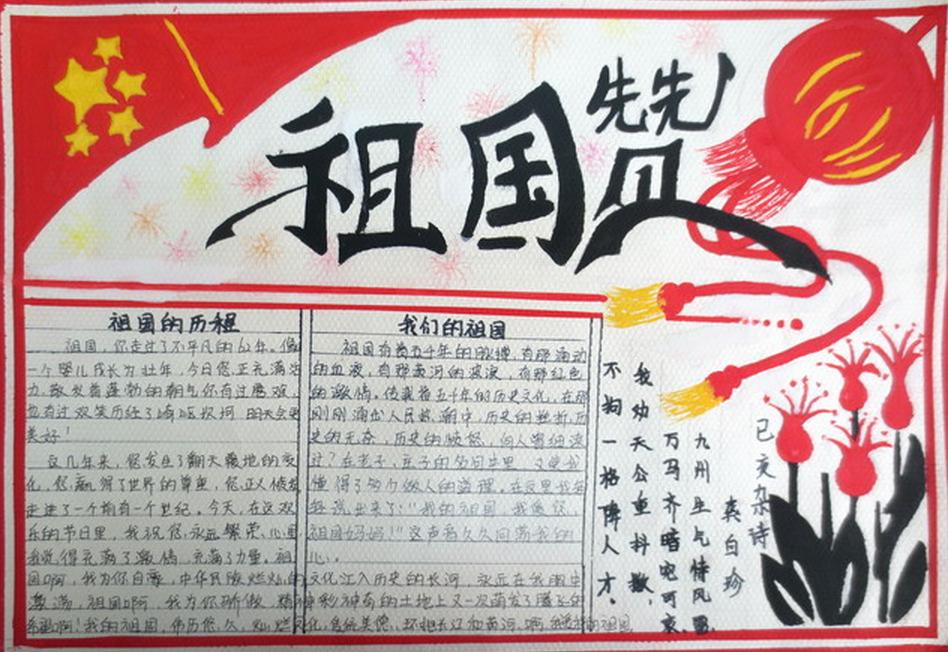 祖国赞
祖国的历程
祖国,你走过了不平凡的62年。像
一个婴儿成长为壮年,今日您正充满活
力,散发着蓬勃的朝气你有过艰难,
也有过欢笑历经了崎岖坎坷,明天会更
美好!
这几年来,您发生了翻天覆地的变
化,您赢得了世界的尊重,您正大
走进了一个崭新一个世纪。今天,在这欢
乐的节日里,我祝您永远繁荣,心里
我觉得充满了激情,充满了力量,祖
国啊,我为你自豪,中华民族灿烂的文化汇入历史的长河,永远在我眼中
激荡,祖国啊,我为你骄傲,神奇的土地上又一次萌发了
啊!我的祖国,
我们的祖国
祖国有着五千年的脉搏,有那涌动
的血液,有那黄河的波浪,有那红色
的激情,传载着五千年的历史文化,在那
历史的
历史的无奋,历史的愤怒,向人留细流
过?在老子,庄子的名句中里,又使我
懂得了努力做人的道理。在这里我
轻说出来了:"我的祖国,我爱您
祖国妈妈!"这声音久久回荡我的
心。
己亥杂诗
龚自珍
九州生气恃风雷
万马齐喑究可哀。
我劝天公重抖擞,
不拘一格降人才。